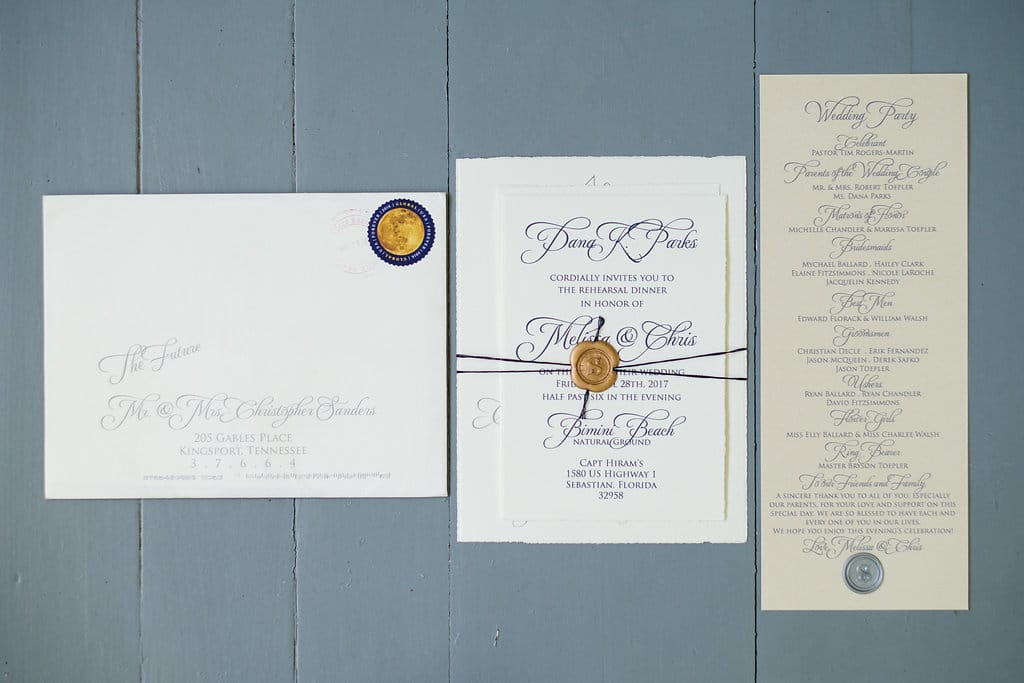 The Future
Mr. & Mrs. Christopher Sanders
205 Gables Place
Kingsport, Tennessee
3 . 7 . 6 . 6 . 4
FOREVER GLOBAL USA FOREVER GLOBAL
Dana K. Parks
CORDIALLY INVITES YOU TO
THE REHEARSAL DINNER
IN HONOR OF
Melissa & Chris
ON THE WEDDING
28TH, 2017
HALF PAST SIX IN THE EVENING
Bimini Beach
NATURAL GROUND
CAPT HIRAM'S
1580 US HIGHWAY 1
SEBASTIAN, FLORIDA
32958
S
Wedding Party
Celebrant
PASTOR TIM ROGERS-MARTIN
Parents of the Wedding Couple
MR. & MRS. ROBERT TOEPLER
MS. DANA PARKS
Matrons of Honor
MICHELLE CHANDLER & MARISSA TOEPLER
Bridesmaids
MYCHAEL BALLARD . HAILEY CLARK
ELAINE FITZSIMMONS . NICOLE LAROCHE
JACQUELIN KENNEDY
Best Men
EDWARD FLORACK & WILLIAM WALSH
Groomsmen
CHRISTIAN DECLE . ERIK FERNANDEZ
JASON MCQUEEN . DEREK SAFKO
JASON TOEPLER
Ushers
RYAN BALLARD . RYAN CHANDLER
DAVID FITZSIMMONS
Flower Girls
MISS ELLY BALLARD & MISS CHARLEE WALSH
Ring Bearer
MASTER BRYSON TOEPLER
To our Friends and Family
A SINCERE THANK YOU TO ALL OF YOU, ESPECIALLY
OUR PARENTS, FOR YOUR LOVE AND SUPPORT ON THIS
SPECIAL DAY. WE ARE SO BLESSED TO HAVE EACH AND
EVERY ONE OF YOU IN OUR LIVES.
WE HOPE YOU ENJOY THIS EVENING'S CELEBRATION!
Love, Melissa & Chris
S